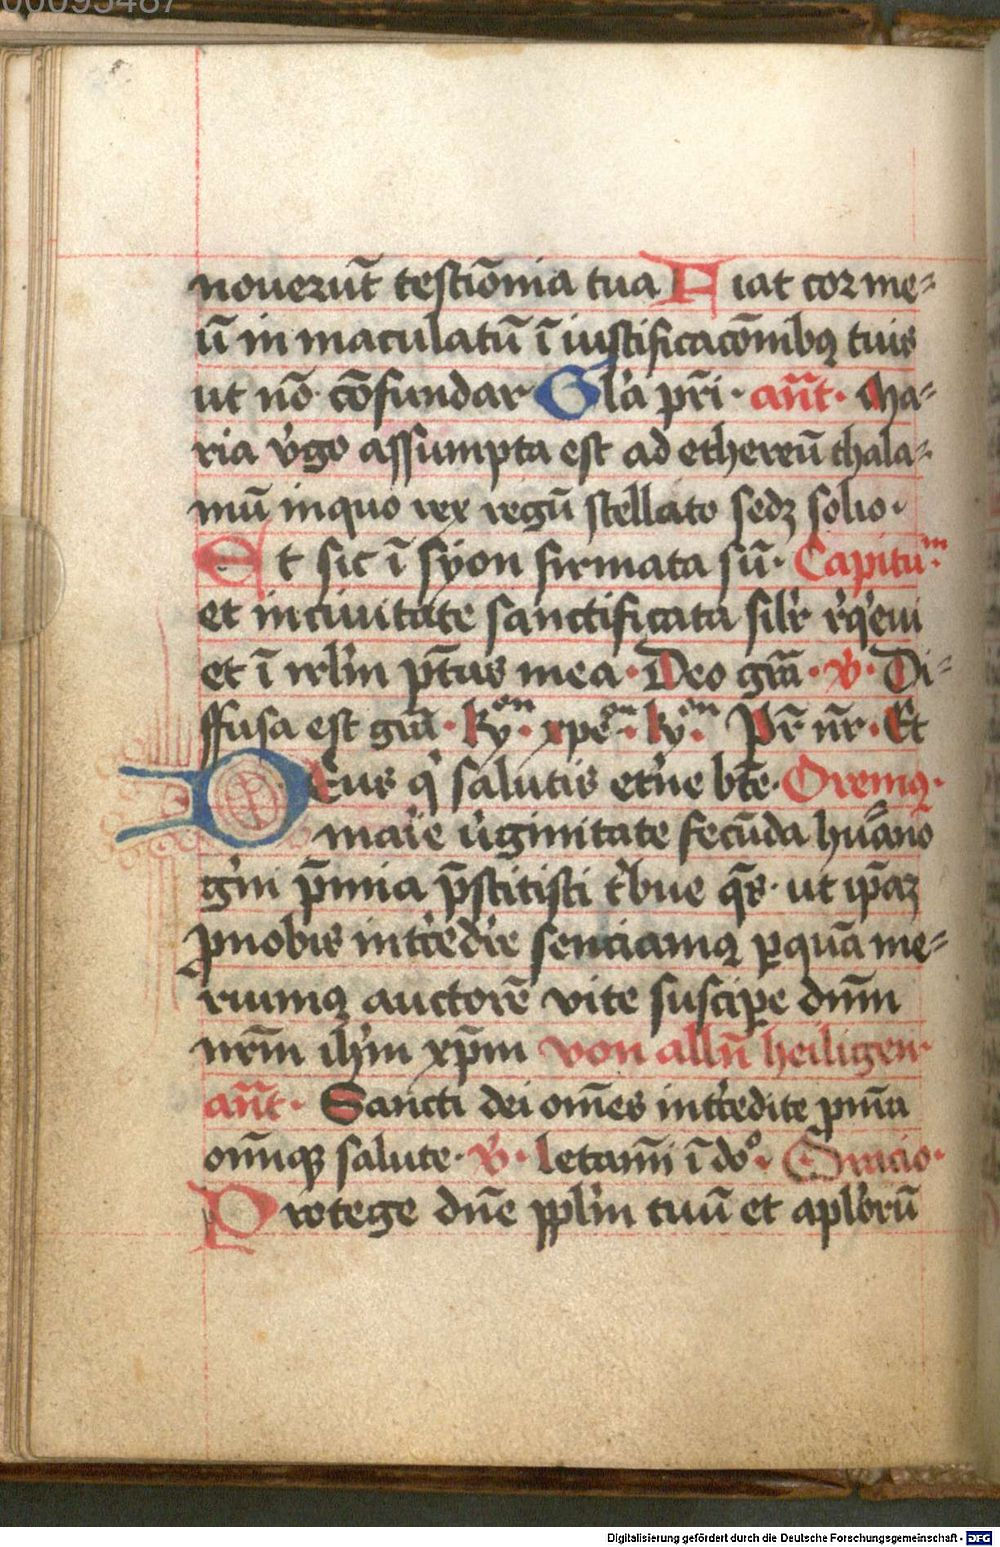 00095487
nouerut̄ testiōnia tua Fiat cor me⸗
ū in maculatū ī iustificacōnibꝰ tuis
ut nō cōfundar Gl'a pr̄i · an̄t · Ma⸗
ria v'go assumpta est ad ethereū thala⸗
mū in quo rex regū stellato sedꝫ solio ·
Et sic ī syon firmata sū · Capitu̅ᵐ ·
et in ciuitate sanctificata silr̄ r̄q'eui
et ī irl'm pt̄as mea · Deo grā · V · Di⸗
ffusa est grā · kyᵒⁿ · xpeᵒⁿ · kyᵒⁿ Pr̄ nr̄ · Et
Deus q' salutis et'ne bt̄e · Oremꝰ ·
mar̄ie u'ginitate fecūda huāno
g'ni p̄mia p̄stitisti t'bue q̄s · ut ip̄aꝫ
pro nobis int'cedr̄e senciamꝰ ꝑ quā me⸗
ruimꝰ auctorē vite suscipe dnm̄
nrm̄ ih'm xp̄m von alln̄ heiligen
an̄t · Sancti dei om̄es int'cedite p nr̄a
om̄iūqꝫ salute · V · Letami ī doᵒ · Oracio ·
Protege dn̄e ppl'm tuū et apl'orū
Digitalisierung gefördert durch die Deutsche Forschungsgemeinschaft - DFG